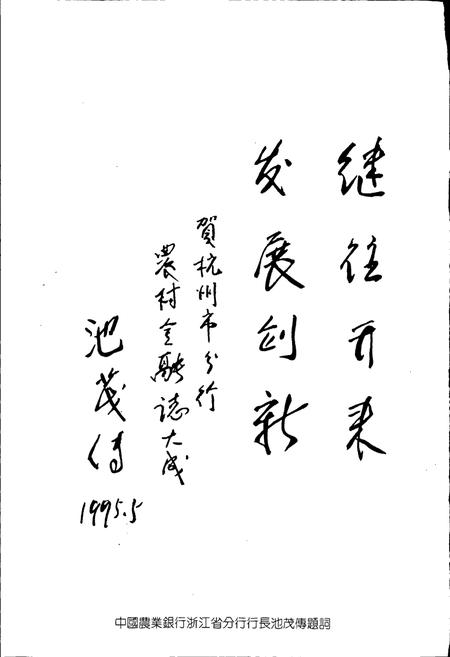 继往开来
发展创新
賀杭州市分行
農村金融誌大成
池茂傳
1995.5
中國農業銀行浙江省分行行長池茂傳題詞